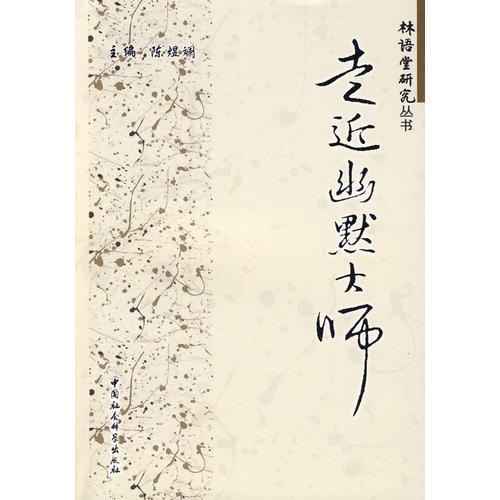 林语堂研究丛书
走近幽默大师
主编 陈煜斓
中国社会科学出版社